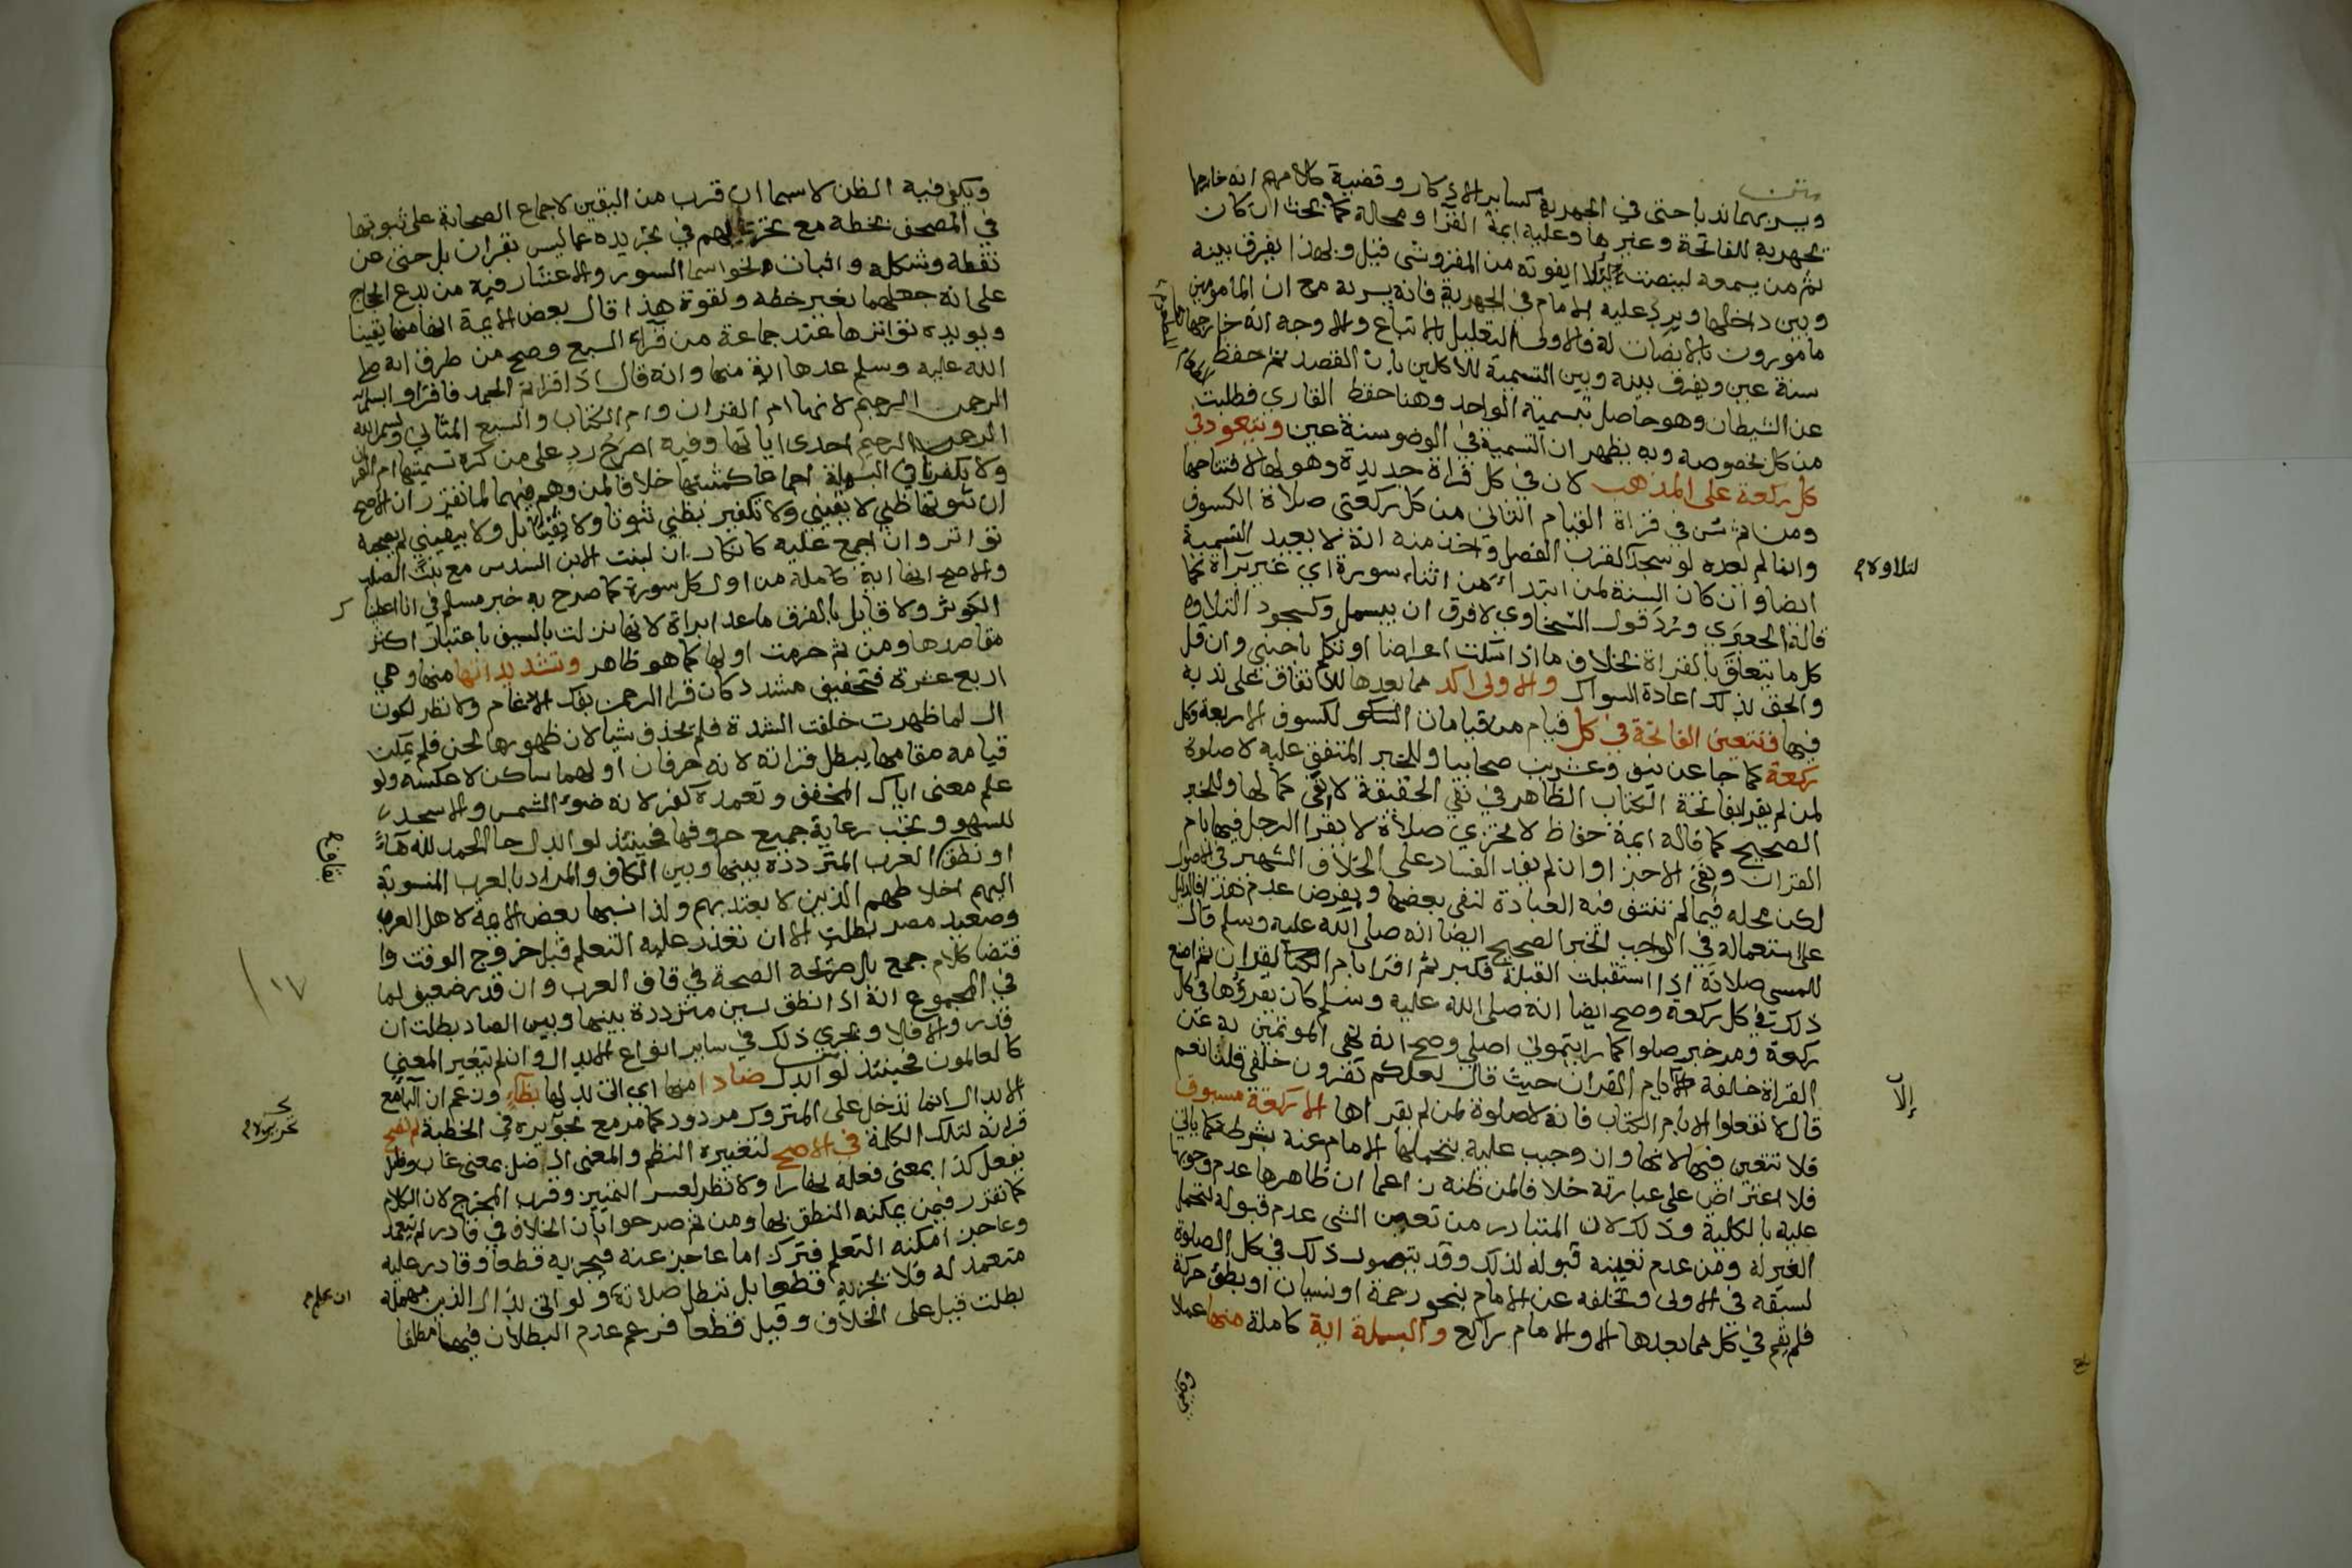 ويسر بهما ندبا حتى في الجهرية كساير الاذكار وقضية كلامهم انه خارجها
كجهرية للفاتحة وغيرها وعليه ايمة القرا ومحله كما بحث ان كان
ثم من يسمعه لينصت ليلا يفوته من المقروشى قيل وبهذا يفرق بينه
وبين داخلها ويرد عليه الامام في الجهرية فانه يسر به مع ان المامومين
مامورون بالانصات له فالاولى التعليل بالاتباع والاوجه انه خارجها
سنة عين ويفرق بينه وبين التسمية للاكلين بان القصد ثم حفظ
عن الشيطان وهو حاصل بتسمية الواحد وهنا حفظ القاري فطلبت
من كل بخصوصه وبه يظهر ان التسمية في الوضو سنة عين ويتعوذ في
كل ركعة على المذهب لان في كل قراة جديدة وهو لها لافتتاحها
ومن ثم سن في قراة القيام الثاني من كل ركعتى صلاة الكسوف
وانما لم يعده لو سجد لقرب الفصل واخذ منه انه لا يعيد التسمية
ايضا وان كان السنة لمن ابتدا من اثناء سورة اي غير براة كما
قاله الجعبري ورد قول السخاوي لا فرق ان يبسمل وكسجود التلاوه
كل ما يتعلق بالقراة بخلاف ما اذا سكت اعراضا او تكلم باجنبي وان قل
والحق بذلك اعادة السواك والاولى اكد مما بعدها للاتفاق على ندبه
فيها وتتعين الفاتحة في كل قيام من قيامات الكسوف الاربعة وكل
ركعة كما جا عن نيف وعشرين صحابيا وللخبر المتفق عليه لا صلوة
لمن لم يقرا بفاتحة الكتاب الظاهر في نفي الحقيقة لا نفي كمالها وللخبر
الصحيح كما قاله ايمة حفاظ لا تجزي صلاة لا يقرا الرجل فيها بام
القران ونفي الاجزا وان لم يفد الفساد على الخلاف الشهير في الاصول
لكن محله فيما لم تنتف فيه العبادة لنفي بعضها وبفرض عدم هذا فالدليل
على استعماله في الواجب الخبر الصحيح ايضا انه صلى الله عليه وسلم قال
للمسي صلاته اذا استقبلت القبلة فكبر ثم اقرا بام القران ثم اصنع
ذلك في كل ركعة وصح ايضا انه صلى الله عليه وسلم كان يقرؤها في كل
ركعة ومر خبر صلوا كما رايتموني اصلي وصح انه نهى المؤتمين به عن
القراة خلفه الا بام القران حيث قال لعلكم تقرون خلفي قلنا نعم
قال لا تفعلوا الا بام الكتاب فانه لا صلوة لمن لم يقراها الا ركعة مسبوق
فلا تتعين فيها لانها وان وجبت عليه يتحملها الامام عنه بشرطه كما ياتي
فلا اعتراض على عبارته خلافا لمن ظنه زاعما ان ظاهرها عدم وجوبها
عليه بالكلية وذلك لان المتبادر من تعين الشى عدم قبوله لتحمل
الغير له ومن عدم تعينه قبوله لذلك وقد يتصور ذلك في كل الصلوة
لسبقه في الاولى وتخلفه عن الامام بنحو زحمة او نسيان او بطؤ حركة
فلم يقم في كل مما بعدها الا والامام راكع والبسملة اية كاملة منها عملا
للتلاوة
إلا
ويكفي فيه الظن لا سيما ان قرب من اليقين لاجماع الصحابة على ثبوتها
في المصحف بخطه مع تحريهم في تجريده عما ليس بقران بل حتى عن
نقطه وشكله واثبات نحو اسما السور والاعشار فيه من بدع الحجاج
على انه جعلهما بغير خطه ولقوة هذا قال بعض الايمة انها منها يقينا
ويويده تواترها عند جماعة من قراء السبع وصح من طرق انه صلى
الله عليه وسلم عدها اية منها وانه قال اذا قراتم الحمد فاقراوا بسم الله
الرحمن الرحيم لانها ام القران وام الكتاب والسبع المثاني وبسم الله
الرحمن الرحيم احدى اياتها وفيه اصرح رد على من كره تسميتها ام القران
ولا يكفر نافي البسملة اجماعا كمثبتها خلافا لمن وهم فيهما لما تقرر ان الاصح
ان ثبوتها ظني لا يقيني ولا تكفير بظني ثبوتا ولا يقينا بل ولا بيقيني لم يصحبه
تواتر وان اجمع عليه كانكار ان لبنت الابن السدس مع بنت الصلب
والاصح انها اية كاملة من اول كل سورة كما صرح به خبر مسلم في انا اعطينا
الكوثر ولا قايل بالفرق ما عدا براة لانها نزلت بالسيف باعتبار اكثر
مقاصدها ومن ثم حرمت اولها كما هو ظاهر وتشديداتها منها وهي
اربع عشرة فتخفيف مشدد كان قرا الرحمن بفك الادغام ولا نظر لكون
ال لما ظهرت خلفت الشدة فلم يحذف شيا لان ظهورها لحن فلم يمكن
قيامه مقامها يبطل قراته لانه حرفان اولهما ساكن لا عكسه ولو
علم معنى اياك المخفف وتعمده كفر لانه ضوء الشمس والا سجد
للسهو وتجب رعاية جميع حروفها فحينئذ لو ابدل حا الحمد لله هآءً
او نطق العرب المترددة بينها وبين الكاف والمراد بالعرب المنسوبة
اليهم اخلاطهم الذين لا يعتد بهم ولذا نسبها بعض الايمة لاهل الغرب
وصعيد مصر بطلت الا ان تعذر عليه التعلم قبل خروج الوقت وا
قتضا كلام جمع بل صريحه الصحة في قاف العرب وان قدر ضعيف لما
في المجموع انه اذا نطق بسين مترددة بينها وبين الصاد بطلت ان
قدر والا فلا ويجري ذلك في ساير انواع الابدال وان لم يتغير المعنى
كالعالمون فحينئذ لو ابدل ضادا منها اي اتى بدلها بظآءٍ وزعم ان البا مع
الابدال انما تدخل على المتروك مردود كما مر مع تحريره في الخطبة لم تصح
قراته لتلك الكلمة في الاصح لتغييره النظم والمعنى اذ ضل بمعنى غاب وظل
يفعل كذا بمعنى فعله نهارا ولا نظر لعسر التمييز وقرب المخرج لان الكلام
كما تقرر فيمن يمكنه النطق بها ومن ثم صرحوا بان الخلاف في قادر لم يتعمد
وعاجز امكنه التعلم فترك اما عاجز عنه فيجزيه قطعا وقادر عليه
متعمد له فلا تجزيه قطعا بل تبطل صلاته ولو اتى بذال الذين مهملة
بطلت قيل على الخلاف وقيل قطعا فزعم عدم البطلان فيهما مطلقا
بقاف
١١٧
ان علم